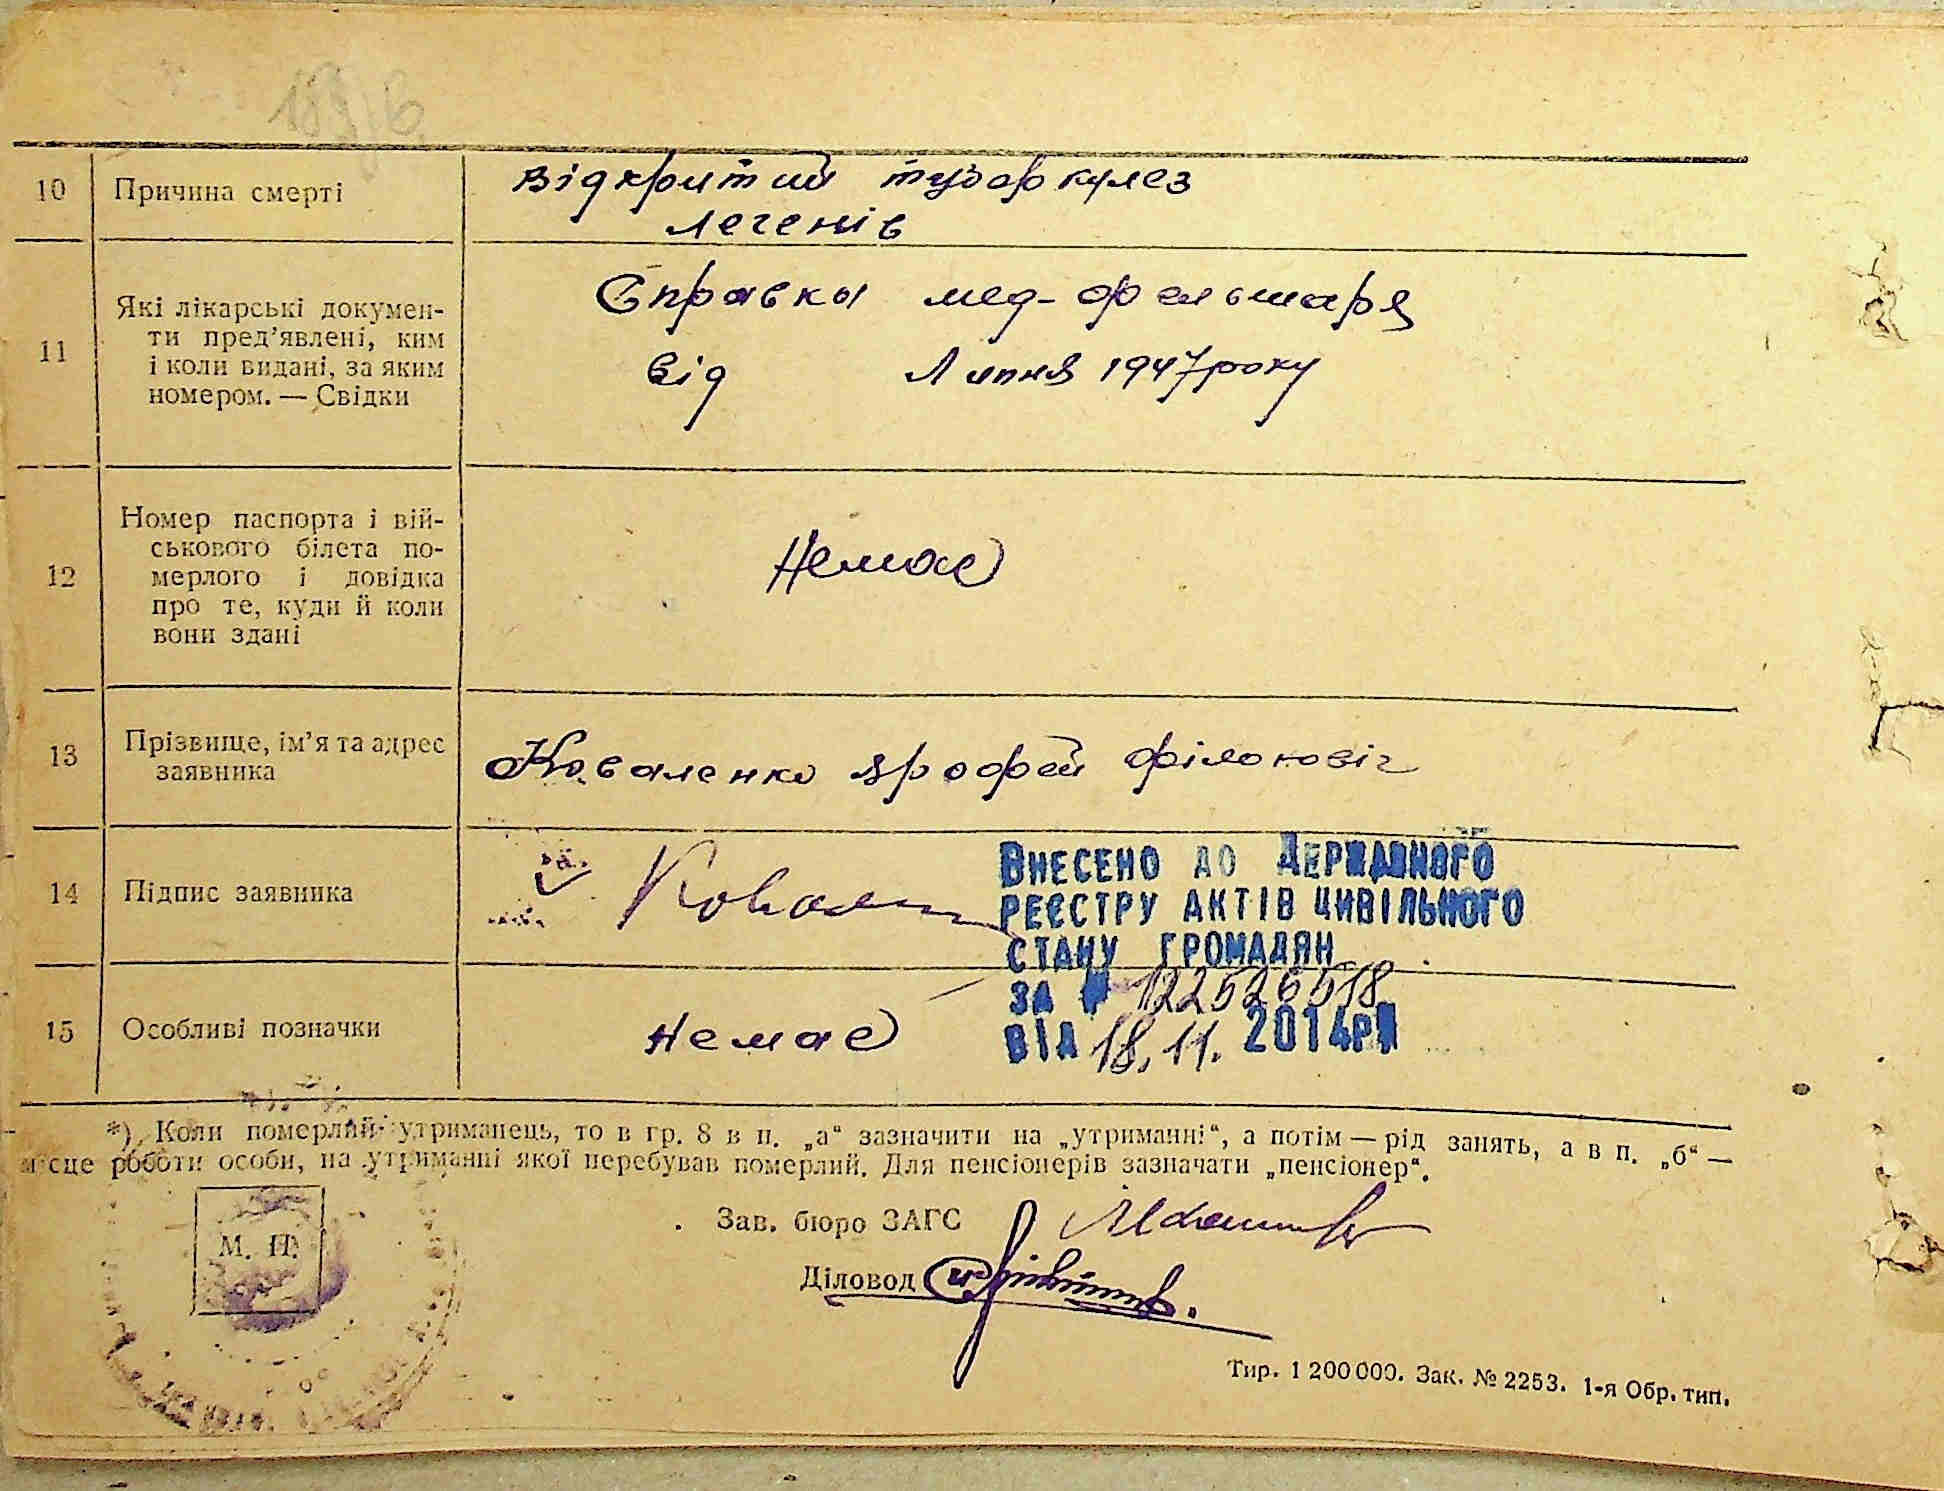 10 Причина смерті
Відкритий туберкулез
легенів
11 Які лікарські докумен-
ти пред’явлені, ким
і коли видані, за яким
номером. — Свідки
Справки мед-фельшаря
Від Липня 1947 року
12 Номер паспорта і вій-
ськового білета по-
мерлого і довідка
про те, куди й коли
вони здані
Немає
13 Прізвище, ім’я та адрес
заявника
Коваленко Єрофей
14 Підпис заявника
15 Особливі позначки
Немає
Внесено до Державного
реєстру актів цивільного
стану громадян
за № 122526518
від 18.11. 2014р
*) Коли померлий утриманець, то в гр. 8 в п. „а“ зазначити на „утриманні“, а потім — рід занять, а в п. „б“ —
місце роботи особи, на утриманні якої перебував померлий. Для пенсіонерів зазначати „пенсіонер“.
М. П.
Зав. бюро ЗАГС
Діловод
Тир. 1 200 000. Зак. № 2253. 1-я Обр. тип.